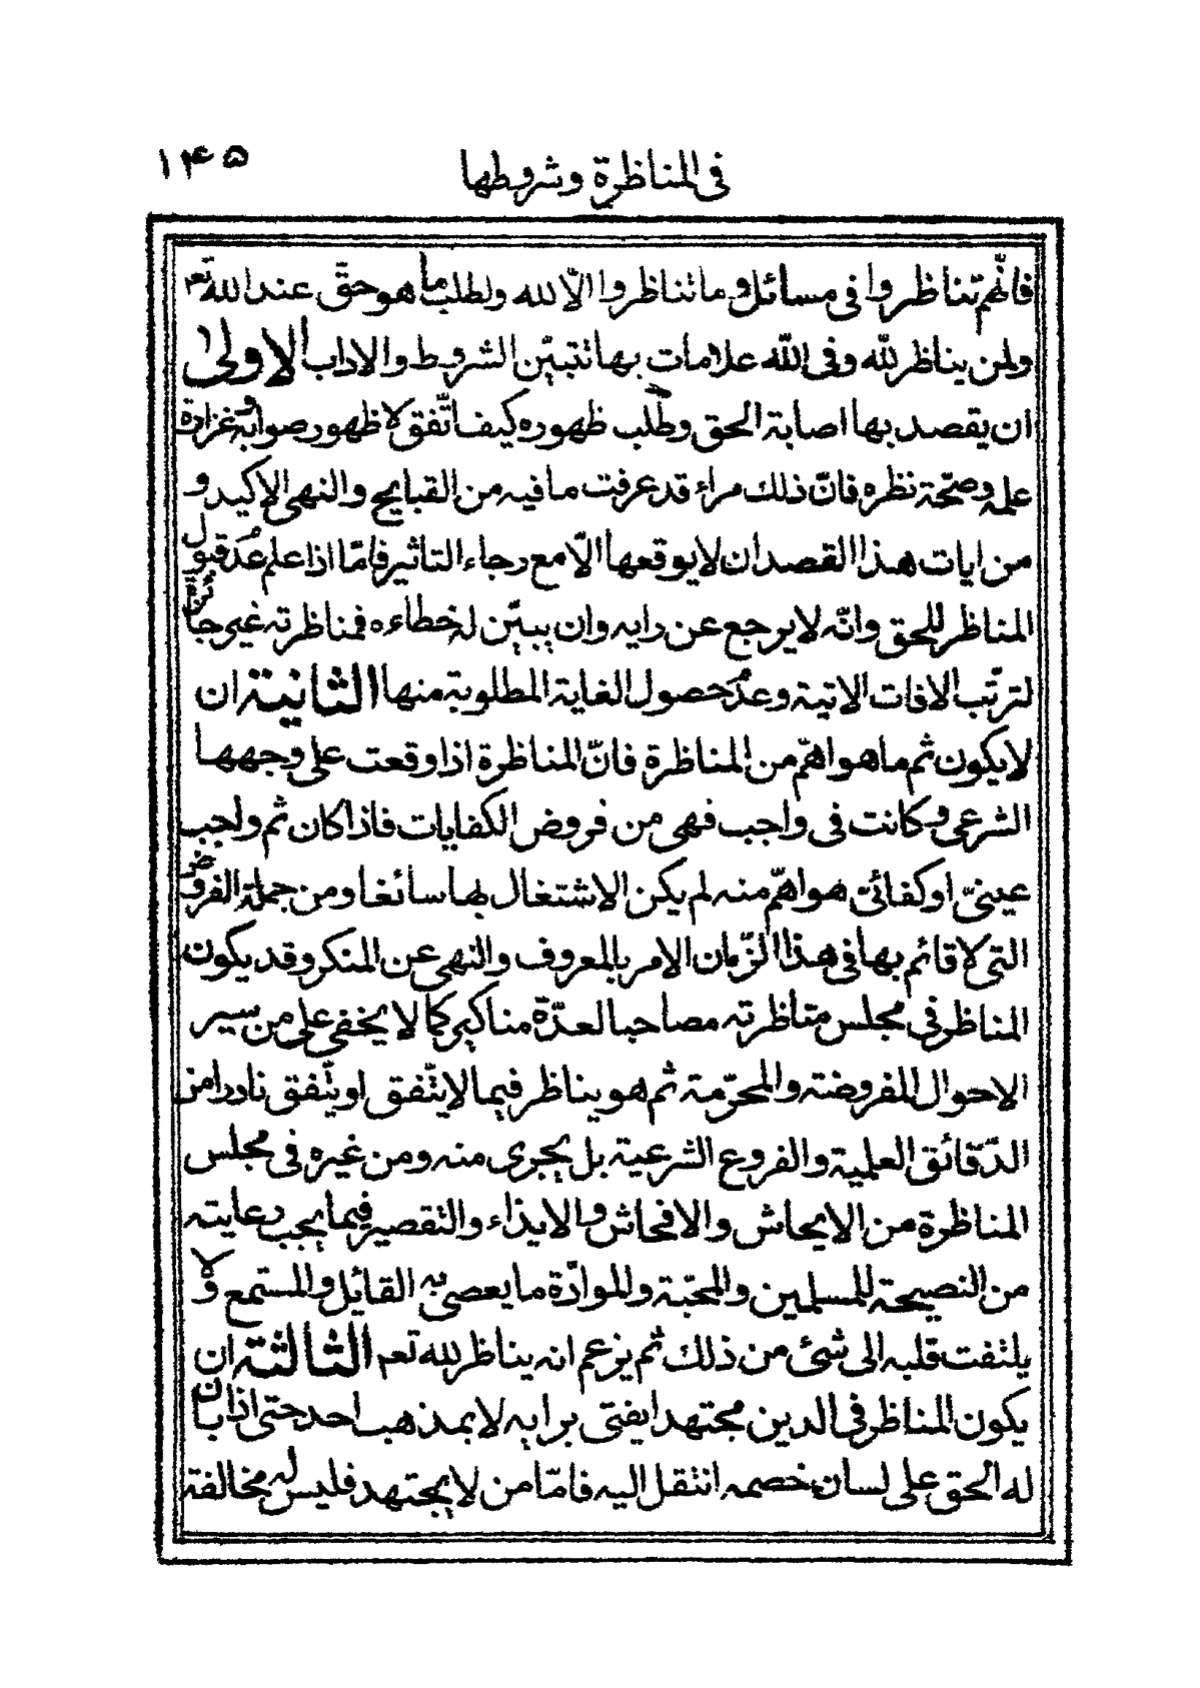 فى المناظرة وشروطها ١٤٥
فانّهم تناظروا فى مسائل وما تناظروا الّا لله ولطلب ما هو حقّ عند الله تعم
ولمن يناظر للّه وفى اللّه علامات بها تتبيّن الشروط والاداب الاولى
ان يقصد بها اصابة الحق وطلب ظهوره كيف اتّفق لا ظهور صوابه وغزارة
علمه وصحّة نظره فانّ ذلك مراء قد عرفت ما فيه من القبايح والنهى الاكيد و
من ايات هذا القصد ان لا يوقعها الّا مع رجاء التاثير فامّا اذا علم عدم قبول
المناظر للحق وانّه لا يرجع عن رايه وان يبيّن له خطاءه فمناظرته غير جائزة
لترتّب الافات الاتية وعدم حصول الغاية المطلوبة منها الثانية ان
لا يكون ثم ما هو اهمّ من المناظرة فانّ المناظرة اذا وقعت على وجهها
الشرعى وكانت فى واجب فهى من فروض الكفايات فاذا كان ثم واجب
عينىّ او كفائىّ هو اهمّ منه لم يكن الاشتغال بها سائغا ومن جملة الفروض
التى لا قائم بها فى هذا الزّمان الامر بالمعروف والنهى عن المنكر وقد يكون
المناظر فى مجلس مناظرته مصاحبا لعدّة مناكير كما لا يخفى على من سير
الاحوال المفروضة والمحرّمة ثم هو يناظر فيما لا يتّفق او يتّفق نادرا من
الدّقائق العلمية والفروع الشرعية بل يجرى منه ومن غيره فى مجلس
المناظرة من الايحاش والافحاش والايذاء والتقصير فيما يجب رعايته
من النصيحة للمسلمين والمحبّة والموادّة ما يعصى به القائل والمستمع ولا
يلتفت قلبه الى شئ من ذلك ثم يزعم انه يناظر لله تعم الثالثة ان
يكون المناظر فى الدين مجتهدا يفتى برايه لا بمذهب احد حتى اذا بان
له الحق على لسان خصمه انتقل اليه فامّا من لا يجتهد فليس له مخالفة